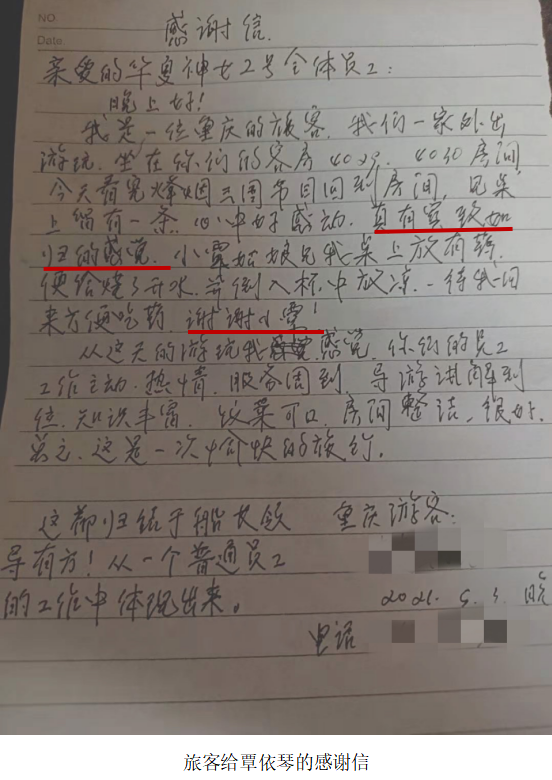 NO.
Date
感谢信.
亲爱的华夏神女2号全体员工:
晚上好!
我是一位重庆的旅客. 我们一家外出
游玩. 坐在你们的客房4029. 4030房间
今天看完烽烟三国节目回到房间, 见桌
上留有一条. 心中好感动. 真有宾致如
归的感觉. 小覃姑娘见我桌上放有药.
便给烧了开水. 并倒入杯中放凉. 待我回
来方便吃药. 谢谢小覃!
从这天的游玩我感觉, 你们的员工
工作主动. 热情. 服务周到, 导游讲解到
位. 知识丰富, 饮菜可口, 房间整洁, 很好.
总之. 这是一次愉快的旅行.
这都归结于船长领 重庆游客:
导有方! 从一个普通员工
的工作中体现出来。 2021. 5. 3. 晚
电话
旅客给覃依琴的感谢信